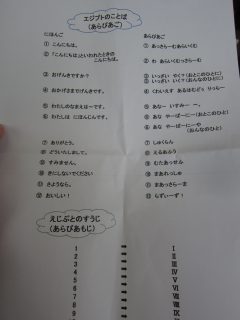 エジプトのことば
(あらびあご)
にほんご
あらびあご
① こんにちは。
① あっさらーむあらいくむ
② 「こんにちは」といわれたときの
こんにちは。
② わ あらいくむっさらーむ
③ おげんきですか?
③ いっざい やく?(おとこのひとに)
③ いっざい いく?(おんなのひとに)
④ おかげさまでげんきです。
④ くわいえす あるはむどぅ りっらー
⑤ わたしのなまえは~です。
⑤ あなー いすみー ~。
⑥ わたしは にほんじんです。
⑥ あな やーばーにー(おとこのひと)
あな やーばーにーや
(おんなのひと)
⑦ ありがとう。
⑦ しゅくらん
⑧ どういたしまして。
⑧ えるあふう
⑨ すみません。
⑨ むたあっせふ
⑩ きにしないでください
⑩ まあれっしゅ
⑪ さようなら。
⑪ まあっさらーま
⑫ おいしい!
⑫ らずぃーず!
えじぷとのすうじ
(あらびあもじ)
1 Ⅰ
2 Ⅱ
3 Ⅲ
4 Ⅳ
5 Ⅴ
6 Ⅵ
7 Ⅶ
8 Ⅷ
9 Ⅸ